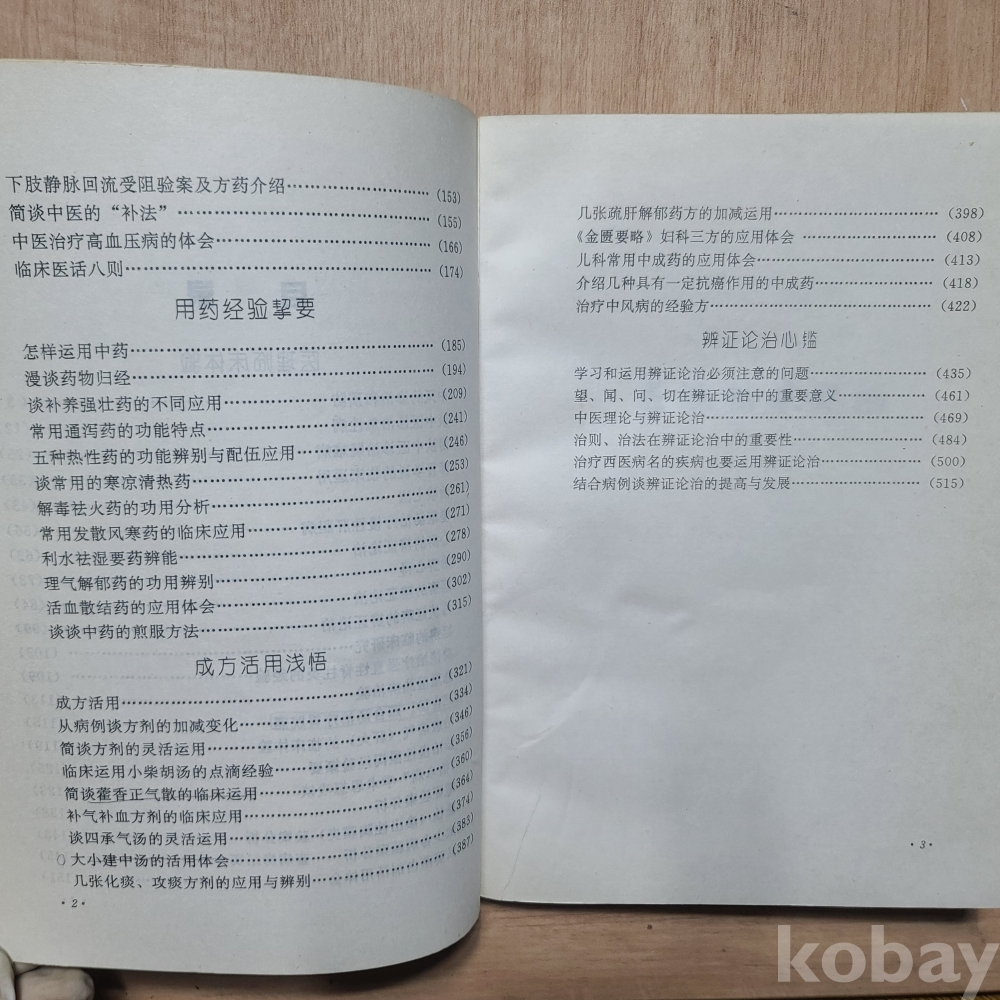 下肢静脉回流受阻验案及方药介绍……………………(153)
简谈中医的“补法”……………………(155)
中医治疗高血压病的体会……………………(166)
临床医话八则……………………(174)
用药经验挈要
怎样运用中药……………………(185)
漫谈药物归经……………………(194)
谈补养强壮药的不同应用……………………(209)
常用通泻药的功能特点……………………(241)
五种热性药的功能辨别与配伍应用……………………(246)
谈常用的寒凉清热药……………………(253)
解毒祛火药的功用分析……………………(261)
常用发散风寒药的临床应用……………………(271)
利水祛湿要药辨能……………………(278)
理气解郁药的功用辨别……………………(290)
活血散结药的应用体会……………………(302)
谈谈中药的煎服方法……………………(315)
成方活用浅悟
成方活用……………………(321)
从病例谈方剂的加减变化……………………(334)
简谈方剂的灵活运用……………………(346)
临床运用小柴胡汤的点滴经验……………………(356)
简谈藿香正气散的临床运用……………………(360)
补气补血方剂的临床应用……………………(364)
谈四承气汤的灵活运用……………………(374)
大小建中汤的活用体会……………………(383)
几张化痰、攻痰方剂的应用与辨别……………………(387)
·2·
几张疏肝解郁药方的加减运用……………………(398)
《金匮要略》妇科三方的应用体会……………………(408)
儿科常用中成药的应用体会……………………(413)
介绍几种具有一定抗癌作用的中成药……………………(418)
治疗中风病的经验方……………………(422)
辨证论治心鑑
学习和运用辨证论治必须注意的问题……………………(435)
望、闻、问、切在辨证论治中的重要意义……………………(461)
中医理论与辨证论治……………………(469)
治则、治法在辨证论治中的重要性……………………(484)
治疗西医病名的疾病也要运用辨证论治……………………(500)
结合病例谈辨证论治的提高与发展……………………(515)
·3·
kobay